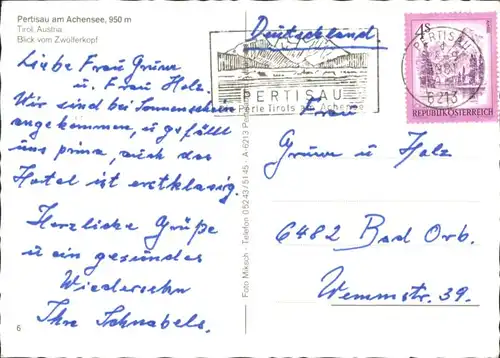 Pertisau am Achensee, 950 m
Tirol, Austria
Blick vom Zwölferkopf
Liebe Frau Gruw
u. Frau Holz.
Wir sind bei Sonnenschein
angekommen, u gefällt
uns prima, auch das
Hotel ist erstklassig.
Herzliche Grüße
u ein gesundes
Wiedersehn
Ihre Schnabels.
6
Foto Miksch - Telefon 0 52 43 / 51 45 - A-6213 Pertisau
Deutschland
PERTISAU
Perle Tirols am Achensee
PERTISAU
6213
4S
REPUBLIK ÖSTERREICH
Frau
Gruw u Holz
6482 Bad Orb.
Wemmstr. 39.